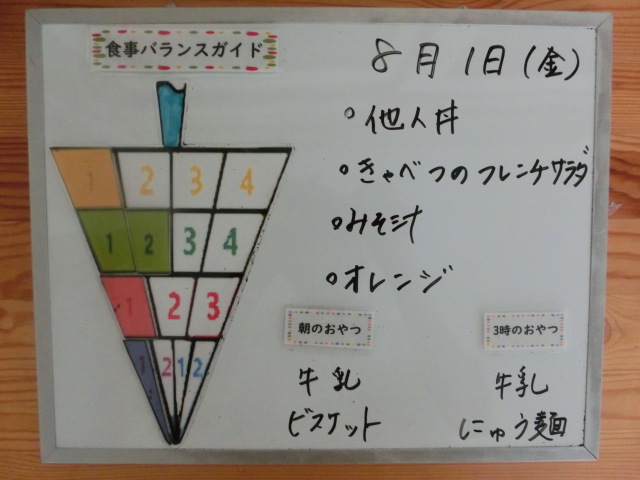 食事バランスガイド
8月1日(金)
1 2 3 4
1 2 3 4
1 2 3
1 2 1 2
○他人丼
○きゃべつのフレンチサラダ
○みそ汁
○オレンジ
朝のおやつ
牛乳
ビスケット
3時のおやつ
牛乳
にゅう麺